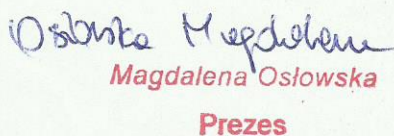 Osłowska Magdalena
Magdalena Osłowska
Prezes